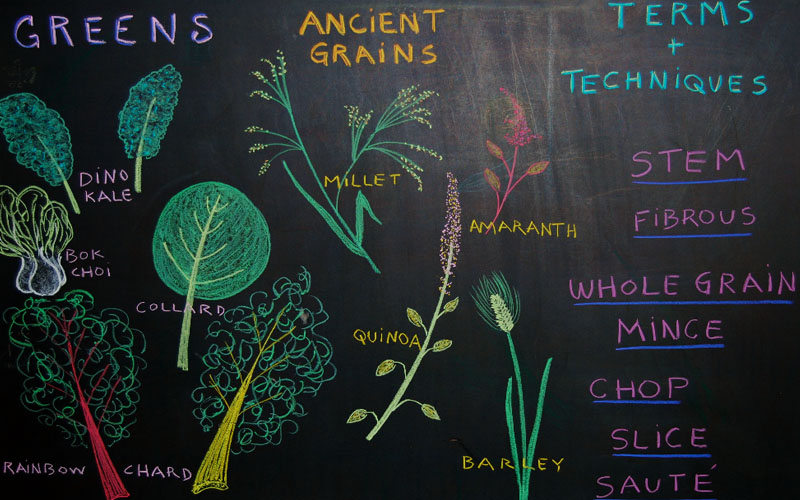 GREENS
DINO
KALE
BOK
CHOI
COLLARD
RAINBOW CHARD
ANCIENT
GRAINS
MILLET
AMARANTH
QUINOA
BARLEY
TERMS
+
TECHNIQUES
STEM
FIBROUS
WHOLE GRAIN
MINCE
CHOP
SLICE
SAUTÉ